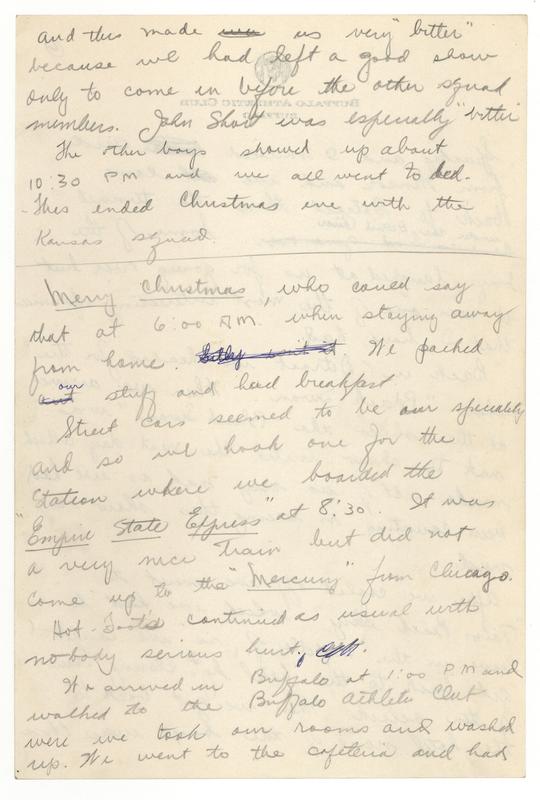 and this made us very "bitter"
because we had left a good show
only to come in before the other squad
members. John Show was especially "bitter"
The other boys showed up about
10:30 PM and we all went to bed.
This ended Christmas eve with the
Kansas squad.
Merry Christmas, who could say
that at 6:00 AM. when staying away
from home. We packed
our stuff and had breakfast
Street cars seemed to be our speciality
and so we hook one for the
Station where we boarded the
"Empire State Express" at 8:30. It was
a very nice train but did not
come up to the "Mercury" from Chicago.
Hot-Foots continued as usual with
nobody serious hurt.
We arrived in Buffalo at 1:00 PM and
walked to the Buffalo Athletic Club
were we took our rooms and washed
up. We went to the cafeteria and had